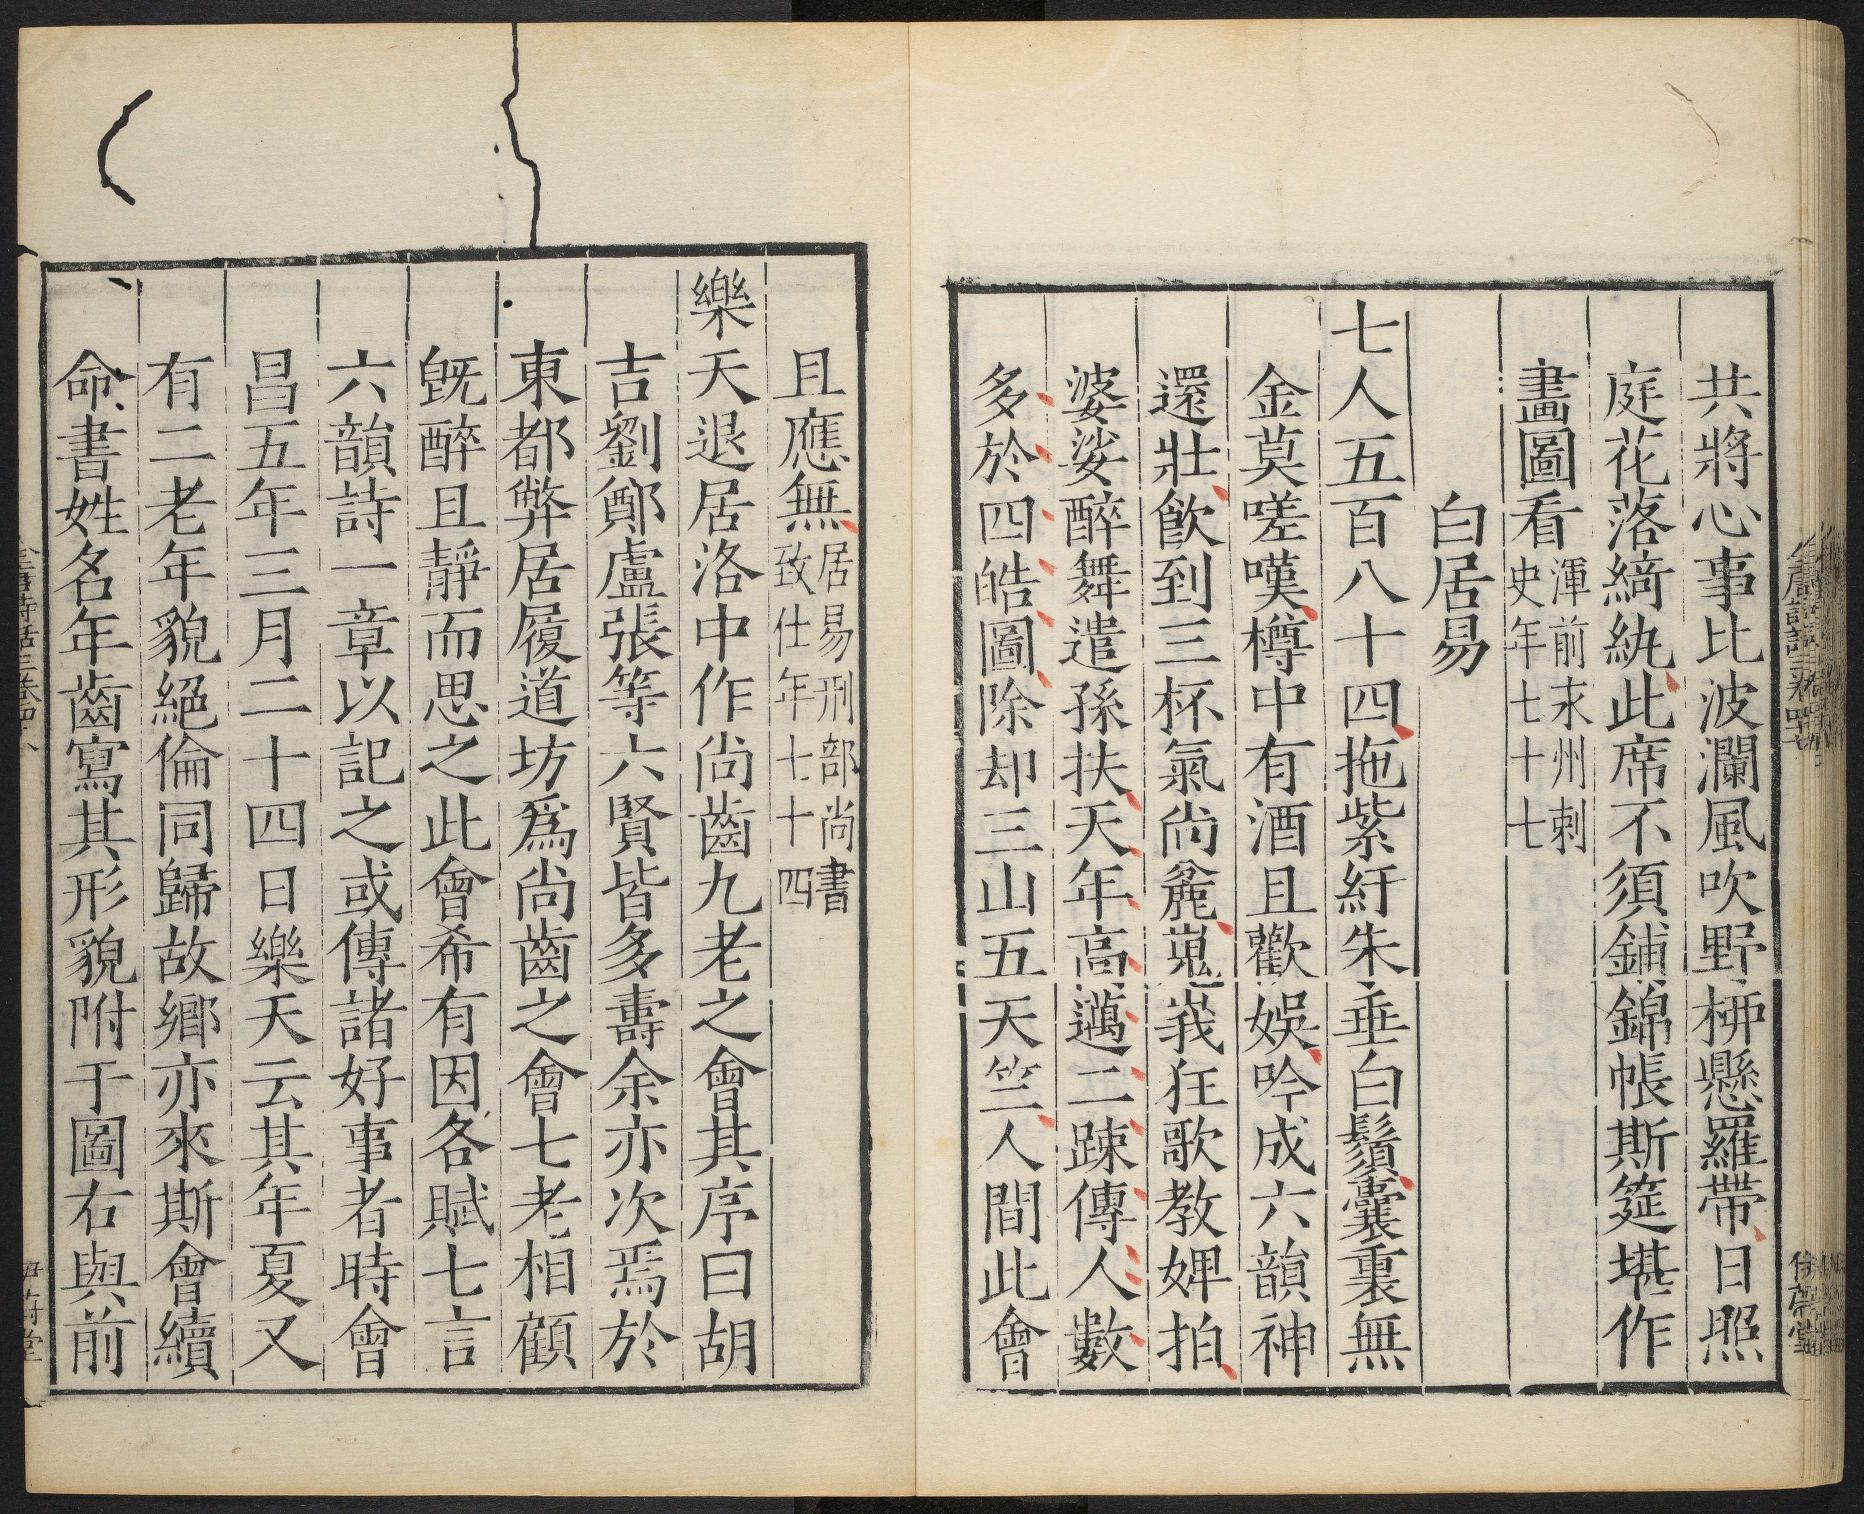 共將心事比波瀾風吹野柳懸羅帶日照
庭花落綺紈此席不須鋪錦帳斯筵堪作
畫圖看渾前求州刺史年七十七
白居易
七人五百八十四拖紫紆朱垂白鬚囊裏無
金莫嗟嘆樽中有酒且歡娛吟成六韻神
還壯飲到三杯氣尚麄嵬峩狂歌教婢拍
婆娑醉舞遣孫扶天年高邁二踈傳人數
多於四皓圖除却三山五天竺人間此會
且應無居易刑部尚書致仕年七十四
樂天退居洛中作尚齒九老之會其序曰胡
吉劉鄭盧張等六賢皆多壽余亦次焉於
東都弊居履道坊爲尚齒之會七老相顧
旣醉且靜而思之此會希有因各賦七言
六韻詩一章以記之或傳諸好事者時會
昌五年三月二十四日樂天云其年夏又
有二老年貌絕倫同歸故鄉亦來斯會續
命書姓名年齒寫其形貌附于圖右與前